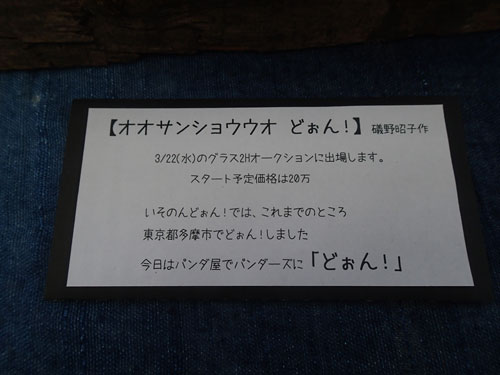 【オオサンショウウオ どぉん!】 礒野昭子作
3/22(水)のグラス2Hオークションに出場します。
スタート予定価格は20万
いそのんどぉん!では、これまでのところ
東京都多摩市でどぉん!しました
今日はパンダ屋でパンダーズに「どぉん!」